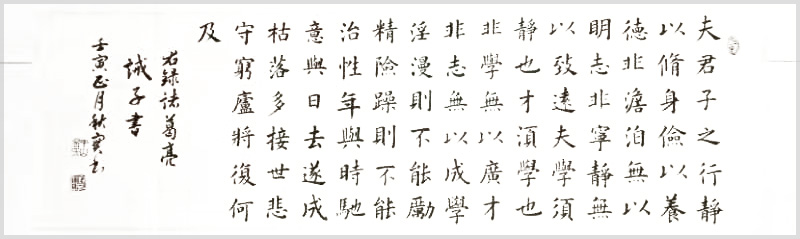 夫君子之行靜
以脩身儉以養
德非澹泊無以
明志非寧靜無
以致遠夫學須
靜也才須學也
非學無以廣才
非志無以成學
淫漫則不能勵
精險躁則不能
治性年與時馳
意與日去遂成
枯落多接世悲
守窮廬將復何
及
右錄諸葛亮
誡子書
壬寅正月秋實书